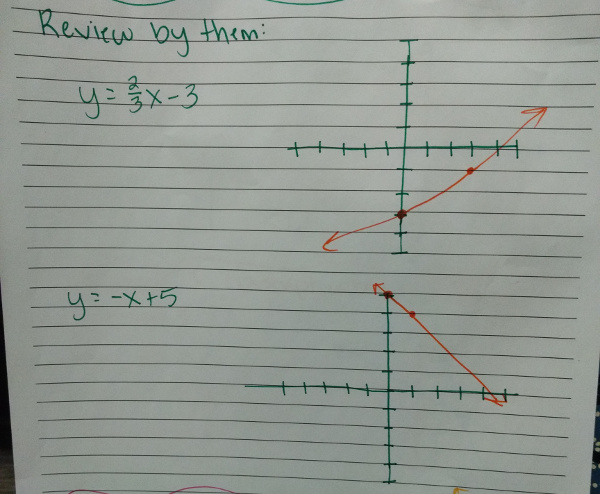 Review by them:
y = 2/3 x - 3
y = -x + 5